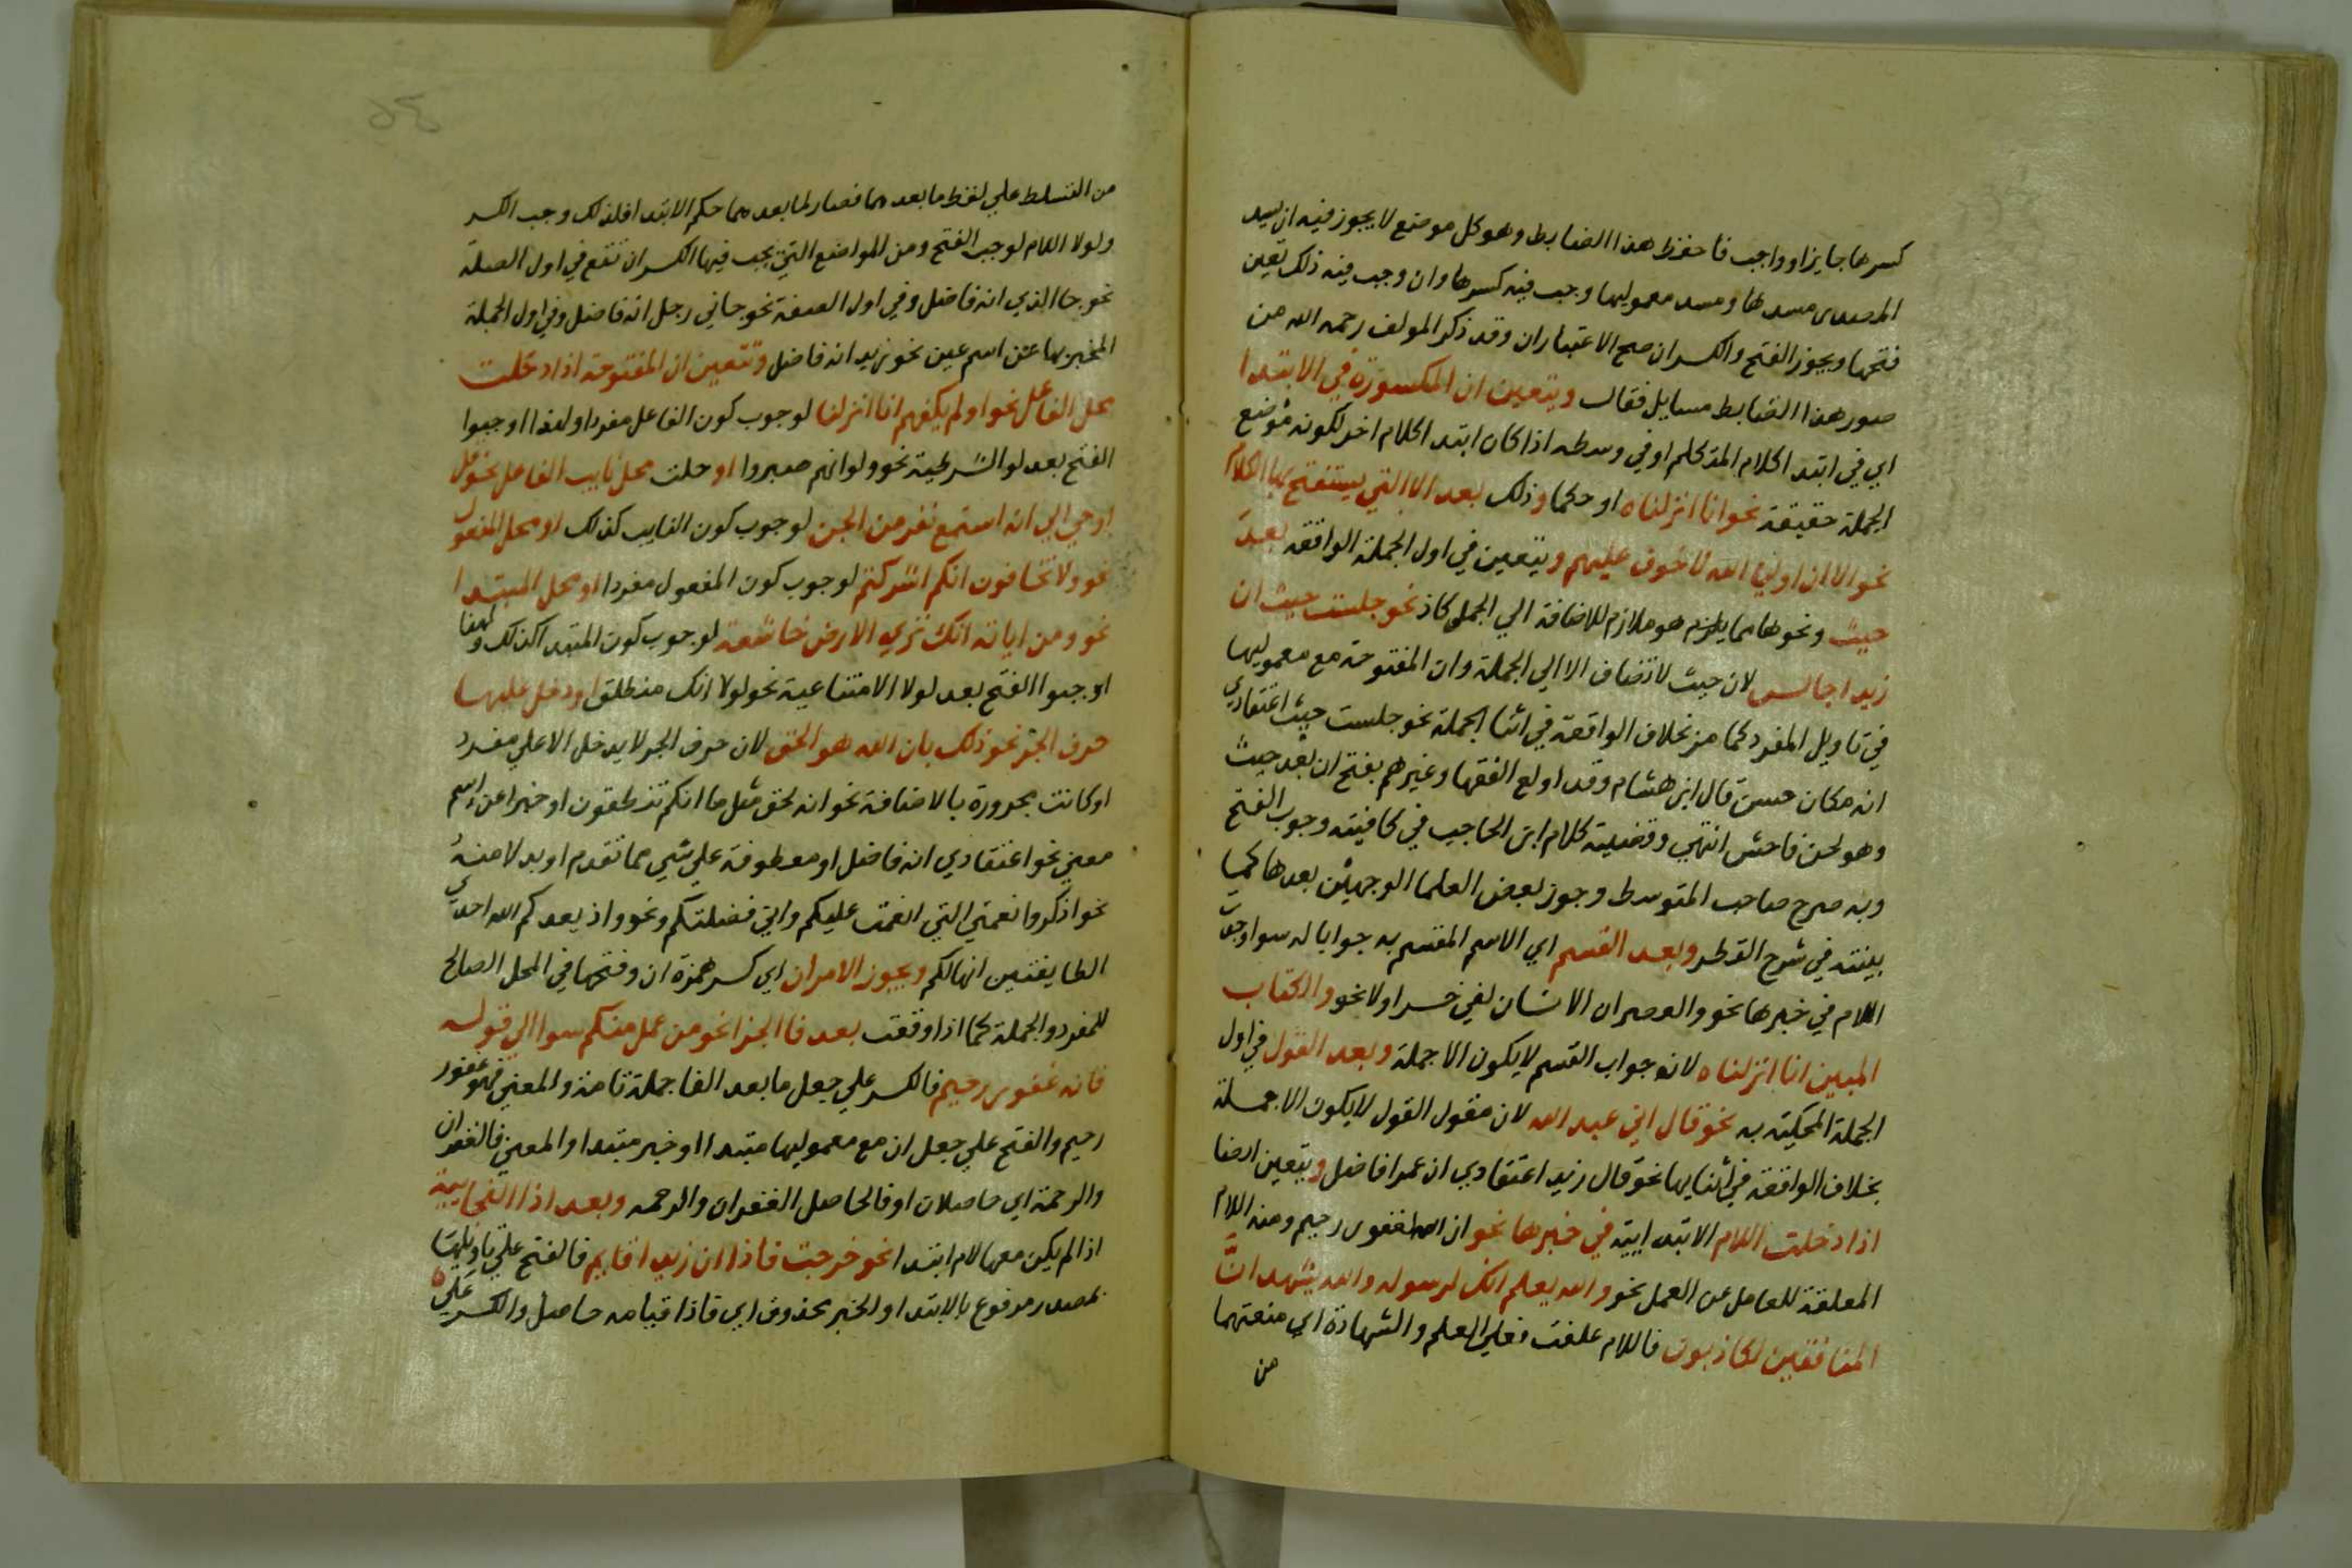 كسرها جايزا وواجب فاحفظ هذا الضابط وهو كل موضع لا يجوز فيه ان يسد
المصدر مسدها ومسد معموليها وجب فيه كسرها وان وجب فيه ذلك تعين
فتحها ويجوز الفتح والكسر ان صح الاعتباران وقد ذكر المولف رحمه الله من
صور هذا الضابط مسايل فقال ويتعين ان المكسورة في الابتدا
اي في ابتدا كلام المتكلم او في وسطه اذا كان ابتدا كلام اخر لكونه موضع
الجملة حقيقة نحو انا انزلناه او حكما وذلك بعد الا التي يستفتح بها الكلام
نحو الا ان اوليا الله لا خوف عليهم ويتعين في اول الجملة الواقعة بعد
حيث ونحوها مما يلزم هو ملازم للاضافة الي الجمل كاذ نحو جلست حيث ان
زيدا جالس لان حيث لا تضاف الا الي الجملة وان المفتوحة مع معموليها
في تاويل المفرد كما مر بخلاف الواقعة في اثنا الجملة نحو جلست حيث اعتقادي
انه مكان حسن قال ابن هشام وقد اولع الفقها وغيرهم بفتح ان بعد حيث
وهو لحن فاحش انتهي وقضية كلام ابن الحاجب في كافيته وجوب الفتح
وبه صرح صاحب المتوسط وجوز بعض العلما الوجهين بعدها كما
بينته في شرح القطر وبعد القسم اي الاسم المقسم به جوابا له سوا وجد
اللام في خبرها نحو والعصر ان الانسان لفي خسر اولا نحو والكتاب
المبين انا انزلناه لانه جواب القسم لا يكون الا جملة وبعد القول في اول
الجملة المحكية به نحو قال اني عبد الله لان مقول القول لا يكون الا جملة
بخلاف الواقعة في اثنايها نحو قال زيد اعتقادي ان عمرا فاضل ويتعين ايضا
اذا دخلت اللام الابتدايية في خبرها نحو ان الله لغفور رحيم ومنه اللام
المعلقة للعامل عن العمل نحو والله يعلم انك لرسوله والله يشهد انّ
المنافقين لكاذبون فاللام علقت فعلي العلم والشهادة اي منعتهما
من
من التسلط علي لفظ ما بعدهما فصار لما بعدهما حكم الابتدا فلذلك وجب الكسر
ولولا اللام لوجب الفتح ومن المواضع التي يجب فيها الكسر ان تقع في اول الصلة
نحو جا الذي انه فاضل وفي اول الصفة نحو جاني رجل انه فاضل وفي اول الجملة
المخبر بها عن اسم عين نحو زيد انه فاضل وتتعين ان المفتوحة اذا دخلت
محل الفاعل نحو اولم يكفهم انا انزلنا لوجوب كون الفاعل مفردا ولهذا اوجبوا
الفتح بعد لو الشرطية نحو ولو انهم صبروا او حلت محل نايب الفاعل نحو قل
اوحي الي انه استمع نفر من الجن لوجوب كون النايب كذلك او محل المفعول
نحو ولا تخافون انكم اشركتم لوجوب كون المفعول مفردا او محل المبتدا
نحو ومن اياته انك تري الارض خاشعة لوجوب كون المبتدا كذلك ولهذا
اوجبوا الفتح بعد لولا الامتناعية نحو لولا انك منطلق او دخل عليها
حرف الجر نحو ذلك بان الله هو الحق لان حرف الجر لا يدخل الا علي مفرد
او كانت مجرورة بالاضافة نحو انه لحق مثل ما انكم تنطقون او خبرا عن اسم
معني نحو اعتقادي انه فاضل او معطوفة علي شي مما تقدم او بدلا منه
نحو اذكروا نعمتي التي انعمت عليكم واني فضلتكم ونحو واذ يعدكم الله احدي
الطايفتين انها لكم ويجوز الامران اي كسر همزة ان وفتحها في المحل الصالح
للمفرد والجملة كما اذا وقعت بعد فا الجزا نحو من عمل منكم سوا الي قوله
فانه غفور رحيم فالكسر علي جعل ما بعد الفا جملة تامة والمعني فهو غفور
رحيم والفتح علي جعل ان مع معموليها مبتدا او خبر مبتدا والمعني فالغفران
والرحمة اي حاصلان او فالحاصل الغفران والرحمه وبعد اذا الفجايية
اذا لم يكن معها لام ابتدا نحو خرجت فاذا ان زيدا قايم فالفتح علي تاويلها
بمصدر مرفوع بالابتدا والخبر محذوف اي فاذا قيامه حاصل والكسر علي